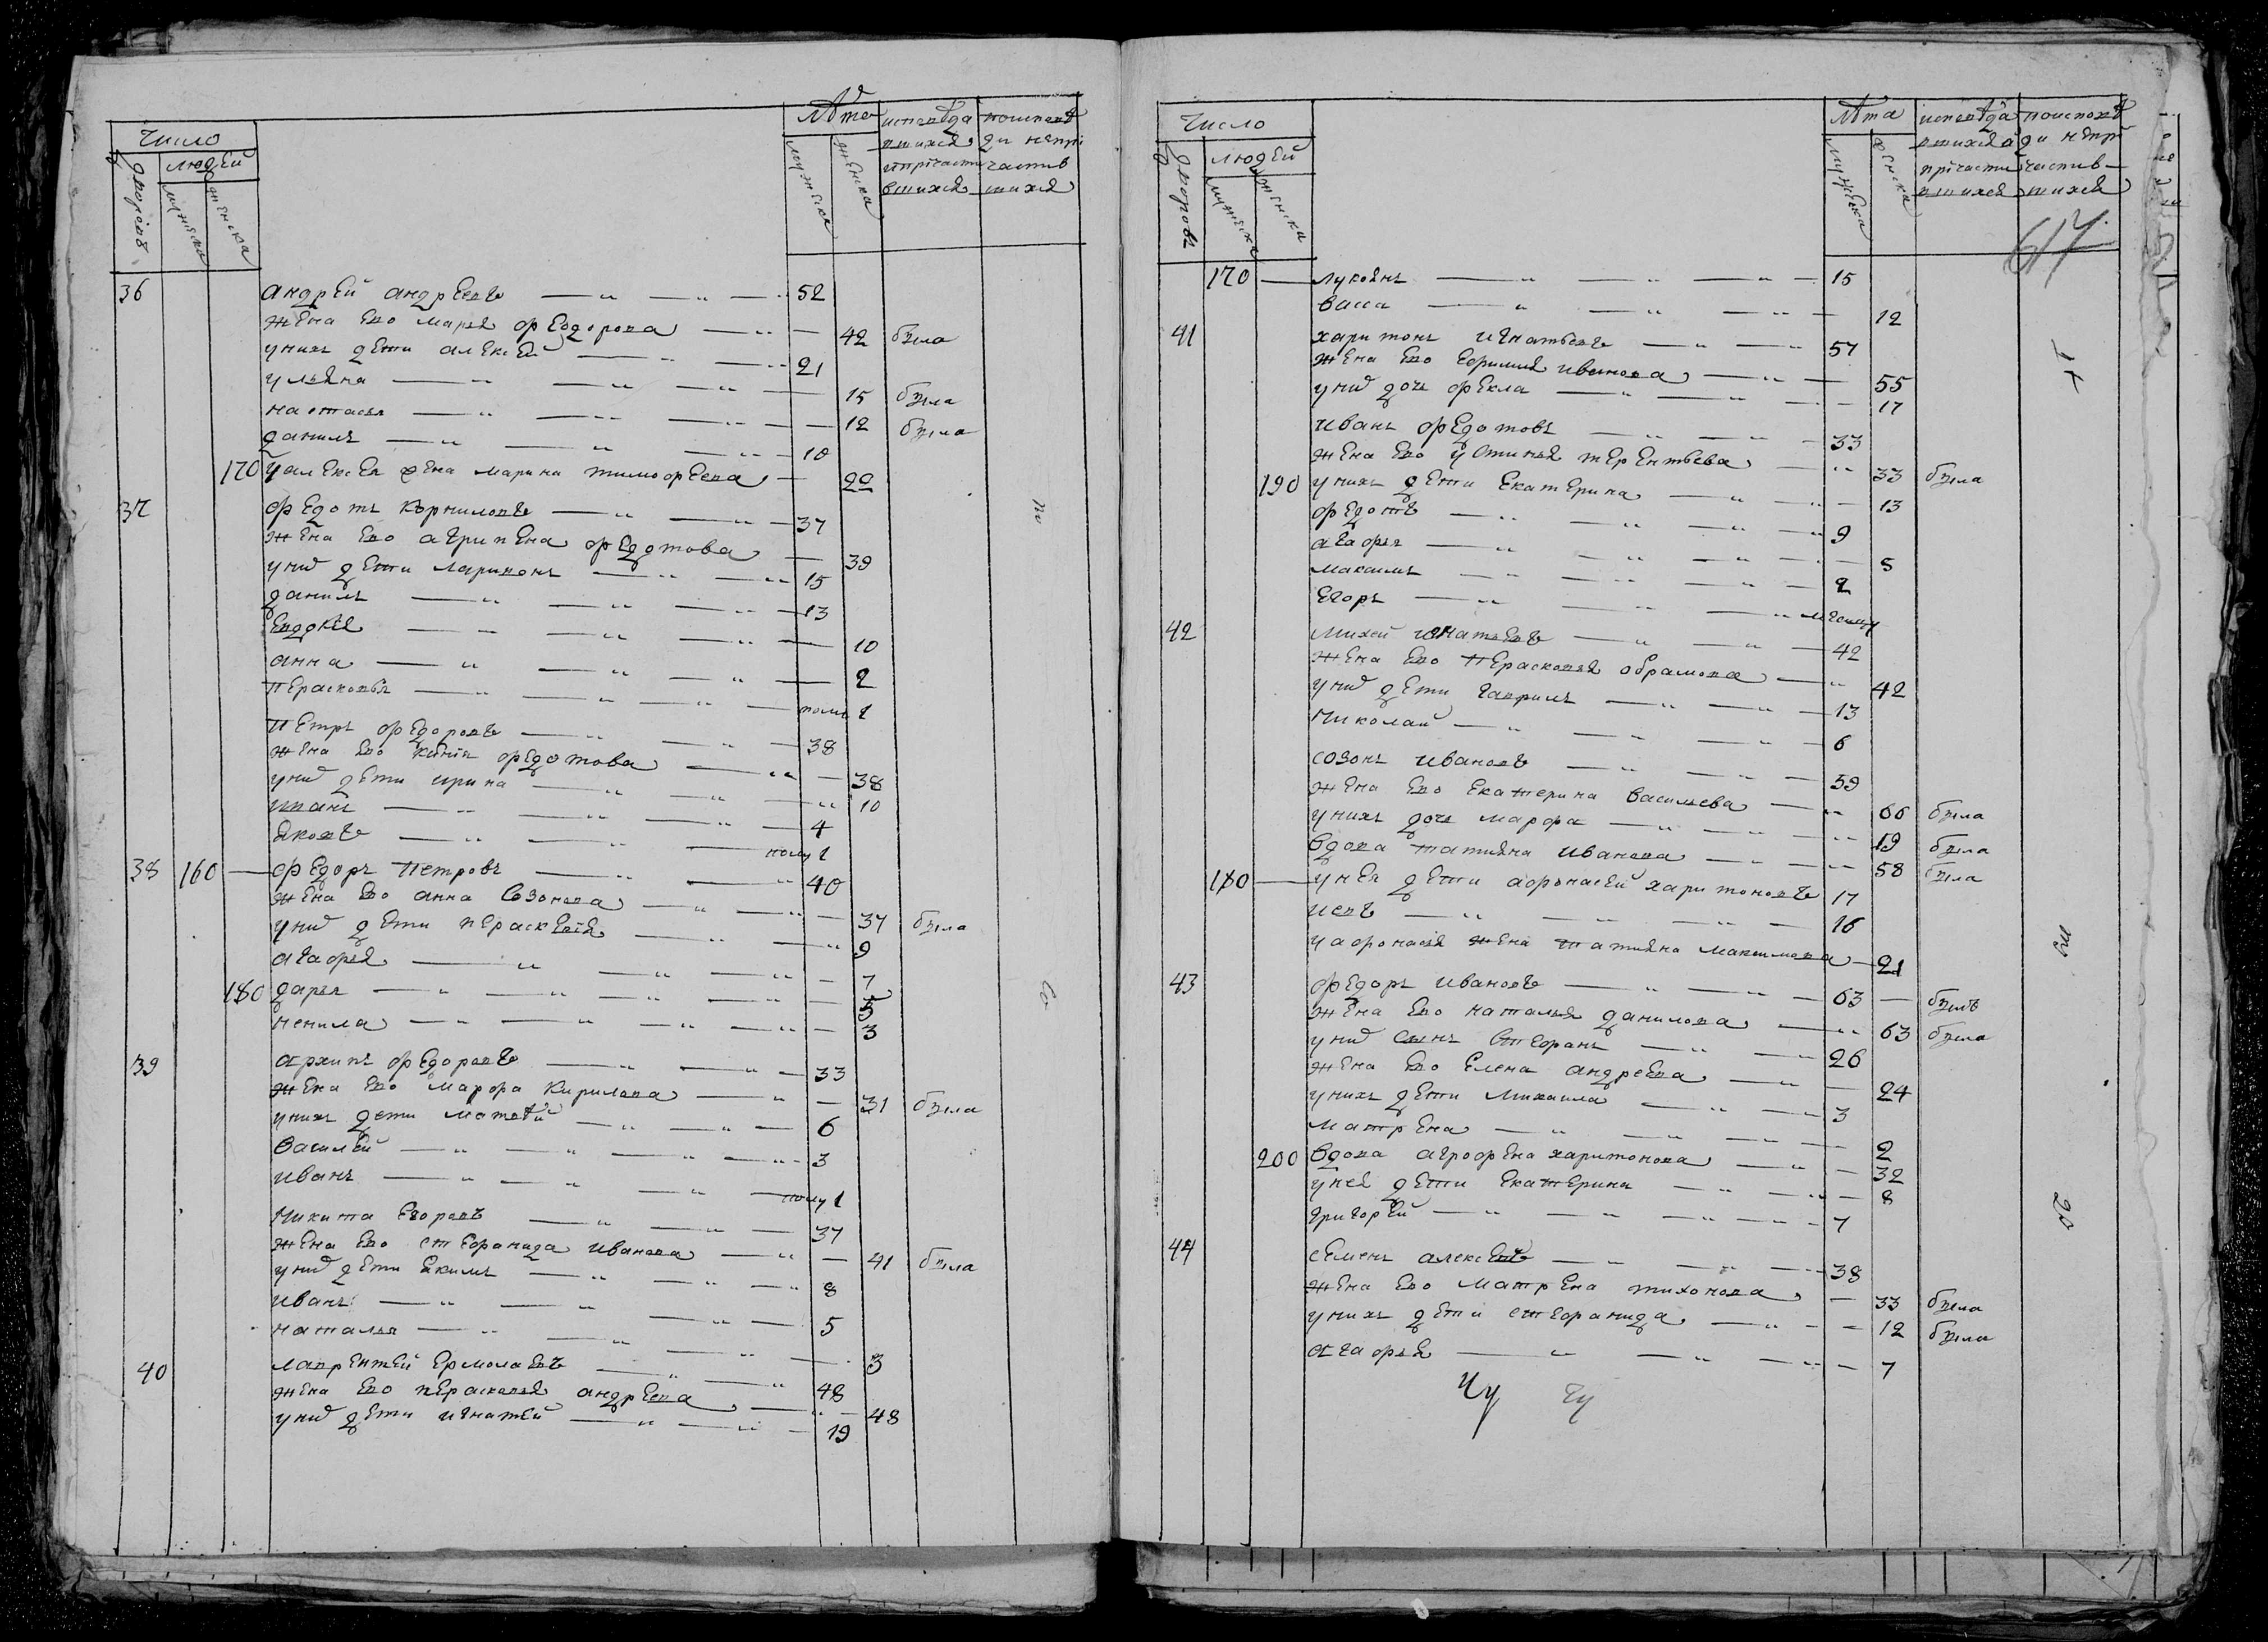 Число
людей
дворовъ
мужеска
женска
Лѣта
мужеска
женска
исповѣда
вшихся
и прічасти
вшихся
поисповѣ
ди непрі
частив
шихся
36 Андрей Андреевъ 52
жена Ево Марья Федорова 42 была
у нихъ дети алексей 21
ульяна 15 была
настасья 12 была
данилъ 10
170 у алексея жена марина тимофеева 22
37 федотъ Корниловъ 37
жена Ево агрипена федотова 39
у них дети Ларивонъ 15
данилъ 13
Евдокѣя 10
анна 2
перасковья полу 1
петръ федоровъ 38
жена Ево федотова 38
у них дети ирина 10
иванъ 4
яковъ полу 1
38 160 федоръ петровъ 40
жена Ево анна Созонова 37 была
у них дети пераскевья 9
агафья 7
180 дарья 5
ненила 3
39 архипъ федоровъ 33
жена Ево марфа Кирилова 31 была
у нихъ дети матвей 6
василей 3
иванъ полу 1
Никита Егоровъ 37
жена Ево стефанида Иванова 41 была
у них дети Екимъ 8
иванъ 5
наталья 3
40 лаврентей ермолаевъ 48
жена Ево перасковья андреева 48
у них дети игнатей 19
Число
людей
дворовъ
мужеска
женска
лѣта
мужеска
женска
исповѣда
вшихся и
прічасти
вшихся
поисповѣ
ди непрі
частив
шихся
617
170 лукоянъ 15
васса 12
41 харитонъ игнатьевъ 57
жена Ево Ефимия Иванова 55
у них дочь фекла 17
иванъ федотовъ 33
жена Ево устинья терентьева 33 была
190 у нихъ дети Екатерина 13
федотъ 9
агафья 5
максимъ 2
Егоръ
42 Михей игнатьевъ 42
жена Ево Перасковья обрамова 42
у них дети гаврилъ 13
Николай 6
созонъ ивановъ 59
жена Ево Екатерина васильева 60 была
у нихъ дочь марфа 19 была
вдова татияна иванова 58 была
180 у нея дети афонасей харитоновъ 17
иевъ 16
у афонасья жена татияна максимова 21
43 федоръ ивановъ 63 былъ
жена Ево наталья данилова 63 была
у них сынъ стефанъ 26
жена Ево Елена андреева 24
у нихъ дети михаила 3
матрена 2
200 вдова агрофена харитонова 32
у нея дети Екатерина 8
григорей 7
44 семенъ алексевъ 38
жена Ево матрена тихонова 33 была
у нихъ дети стефанида 12 была
агафья 7